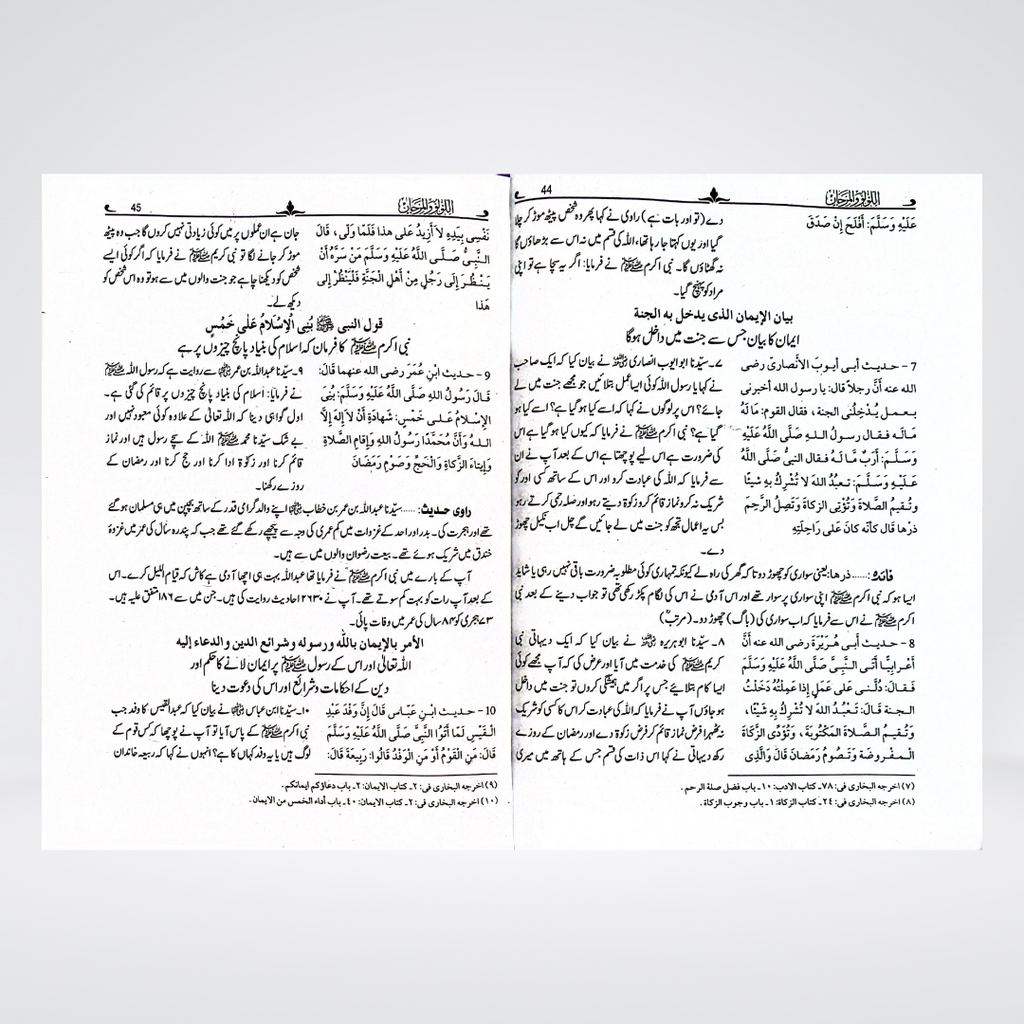 44
اللؤلؤ والمرجان
عَلَيْهِ وَسَلَّمَ: أَفْلَحَ إِنْ صَدَقَ
دے (تو اور بات ہے) راوی نے کہا پھر وہ شخص پیٹھ موڑ کر چلا
گیا اور یوں کہتا جا رہا تھا، اللہ کی قسم میں نہ اس سے بڑھاؤں گا
نہ گھٹاؤں گا۔ نبی اکرم ﷺ نے فرمایا: اگر یہ سچا ہے تو اپنی
مراد کو پہنچ گیا۔
بيان الإيمان الذى يدخل به الجنة
ایمان کا بیان جس سے جنت میں داخل ہوگا
7- حديث أبى أيوبَ الأنصارىّ رضى
الله عنه أنَّ رجلاً قال: يا رسول الله أخبرنى
بعمل يُدْخِلُنى الجنة، فقال القوم: مَالَهُ
مَالَه فقال رسولُ اللهِ صَلَّى اللَّهُ عَلَيْهِ
وَسَلَّمَ: أَرَبٌ مَّا لَهُ فقال النبىُّ صَلَّى اللَّهُ
عَلَيْهِ وَسَلَّمَ: تَعبُدُ اللهَ لا تُشْرِكُ بِهِ شيئًا
وتُقيمُ الصَّلاةَ وَتُؤْتِى الزكاةَ وَتَصِلُ الرَّحِمَ
ذرها قال كأنّه كانَ على رَاحِلَتِهِ
۷۔ سیّدنا ابو ایوب انصاری ؓ نے بیان کیا کہ ایک صاحب
نے کہا یا رسول اللہ کوئی ایسا عمل بتلائیں جو مجھے جنت میں لے
جائے؟ اس پر لوگوں نے کہا کہ اسے کیا ہو گیا ہے؟ اسے کیا ہو
گیا ہے؟ نبی اکرم ﷺ نے فرمایا کہ کیوں کیا ہو گیا ہے اس
کی ضرورت ہے اس لیے پوچھتا ہے اس کے بعد آپ نے ان
سے فرمایا کہ اللہ کی عبادت کرو اور اس کے ساتھ کسی اور کو
شریک نہ کرو نماز قائم کرو زکوٰۃ دیتے رہو اور صلہ رحمی کرتے رہو
بس یہ اعمال تجھ کو جنت میں لے جائیں گے چل اب نکیل چھوڑ
دے۔
فائدہ: ...... ذرھا: یعنی سواری کو چھوڑ دو تا کہ گھر کی راہ لے کیونکہ تمہاری کوئی مطلوبہ ضرورت باقی نہیں رہی یا شاید
ایسا ہو کہ نبی اکرم ﷺ اپنی سواری پر سوار تھے اور اس آدمی نے اس کی لگام پکڑ رکھی تھی تو جواب دینے کے بعد نبی
اکرم ﷺ نے اس سے فرمایا کہ اب سواری کی (باگ) چھوڑ دو۔ (مرتبؔ)
8- حديث أبى هُرَيْرَةَ رضى الله عنه أنَّ
أَعْرابِيًّا أَتَى النَّبِىَّ صَلَّى اللَّهُ عَلَيْهِ وَسَلَّمَ
فَقَالَ: دُلَّنى على عَمَلٍ إذا عَمِلْتُهُ دَخَلْتُ
الجنة قَالَ: تَعْبُدُ اللهَ لا تُشْرِكُ بِهِ شَيْئًا،
وَتُقيمُ الصَّلاةَ المَكْتُوبَةَ، وَتُؤَدِّى الزَّكاةَ
المَفْروضَةَ وَتَصُومُ رَمَضانَ قَالَ وَالَّذِى
۸۔ سیّدنا ابوہریرہ ؓ نے بیان کیا کہ ایک دیہاتی نبی
کریم ﷺ کی خدمت میں آیا اور عرض کی کہ آپ مجھے کوئی
ایسا کام بتلائیے جس پر اگر میں ہمیشگی کروں تو جنت میں داخل
ہو جاؤں آپ نے فرمایا کہ اللہ کی عبادت کر اس کا کسی کو شریک
نہ ٹھہرا فرض نماز قائم کر فرض زکوٰۃ دے اور رمضان کے روزے
رکھ دیہاتی نے کہا اس ذات کی قسم جس کے ہاتھ میں میری
(۷) اخرجه البخارى فى: ۷۸۔ كتاب الادب: ۱۰۔ باب فضل صلة الرحم.
(۸) اخرجه البخارى فى: ۲٤۔ كتاب الزكاة: ۱۔ باب وجوب الزكاة.
45
اللؤلؤ والمرجان
نَفْسِى بِيَدِهِ لا أَزِيدُ عَلى هذا فَلَمَّا وَلَّى، قَالَ
النَّبِىُّ صَلَّى اللَّهُ عَلَيْهِ وَسَلَّمَ مَنْ سَرَّهُ أَنْ
يَنْظُرَ إِلَى رَجُلٍ مِنْ أَهْلِ الْجَنَّةِ فَلْيَنْظُرْ إِلى
هَذا
جان ہے ان عملوں پر میں کوئی زیادتی نہیں کروں گا جب وہ پیٹھ
موڑ کر جانے لگا تو نبی کریم ﷺ نے فرمایا کہ اگر کوئی ایسے
شخص کو دیکھنا چاہے جو جنت والوں میں سے ہو تو وہ اس شخص کو
دیکھ لے۔
قول النبى ﷺ بُنِىَ الْإِسْلَامُ عَلَى خَمْسٍ
نبی اکرم ﷺ کا فرمان کہ اسلام کی بنیاد پانچ چیزوں پر ہے
9- حديث ابْنِ عُمَرَ رضى الله عنهما قَالَ:
قَالَ رَسُولُ اللهِ صَلَّى اللَّهُ عَلَيْهِ وَسَلَّمَ: بُنِىَ
الإِسْلامُ عَلى خَمْسٍ: شَهَادَةِ أَنْ لا إِلَهَ إِلَّا
اللهُ وَأَنَّ مُحَمَّدًا رَسُولُ اللهِ وَإِقَامِ الصَّلاةِ
وَإيتَاءِ الزَّكاةِ وَالْحَجِّ وَصَوْمِ رَمَضَانَ
۹۔ سیّدنا عبداللہ بن عمر ؓ سے روایت ہے کہ رسول اللہ ﷺ
نے فرمایا: اسلام کی بنیاد پانچ چیزوں پر قائم کی گئی ہے۔
اول گواہی دینا کہ اللہ تعالیٰ کے علاوہ کوئی معبود نہیں اور
بے شک سیّدنا محمد ﷺ اللہ کے سچے رسول ہیں اور نماز
قائم کرنا اور زکوٰۃ ادا کرنا اور حج کرنا اور رمضان کے
روزے رکھنا۔
راوی حدیث: ...... سیّدنا عبداللہ بن عمر بن خطاب ؓ اپنے والد گرامی قدر کے ساتھ بچپن میں ہی مسلمان ہو گئے
تھے اور ہجرت کی۔ بدر اور احد کے غزوات میں کم عمری کی وجہ سے پیچھے رکھے گئے تھے جب کہ پندرہ سال کی عمر میں غزوۂ
خندق میں شریک ہوئے تھے۔ بیعت رضوان والوں میں سے ہیں۔
آپ کے بارے میں نبی اکرم ﷺ نے فرمایا تھا عبداللہ بہت ہی اچھا آدمی ہے کاش کہ قیام اللیل کرے۔ اس
کے بعد آپ رات کو بہت کم سوتے تھے۔ آپ نے ۲۶۳۰ احادیث روایت کی ہیں۔ جن میں سے ۱۸۶ متفق علیہ ہیں۔
۷۳ ہجری کو ۸۴ سال کی عمر میں وفات پائی۔
الأمر بالإيمان بالله ورسوله وشرائع الدين والدعاء إليه
اللہ تعالیٰ اور اس کے رسول ﷺ پر ایمان لانے کا حکم اور
دین کے احکامات و شرائع اور اس کی دعوت دینا
10- حديث ابْنِ عَبَّاسٍ قَالَ إِنَّ وَفْدَ عَبْدِ
الْقَيْسِ لَمَا أَتَوُا النَّبِىَّ صَلَّى اللَّهُ عَلَيْهِ وَسَلَّمَ
قَالَ: مَنِ الْقَوْمُ أَوْ مَنِ الْوَفْدُ قَالُوا: رَبِيعَةُ قَالَ:
۱۰۔ سیّدنا ابن عباس ؓ نے بیان کیا کہ عبدالقیس کا وفد جب
نبی اکرم ﷺ کے پاس آیا تو آپ نے پوچھا کہ کس قوم کے
لوگ ہیں یا یہ وفد کہاں کا ہے؟ انہوں نے کہا کہ ربیعہ خاندان
(۹) اخرجه البخارى فى: ۲۔ كتاب الايمان: ۲۔ باب دعاؤكم ايمانكم.
(۱۰) اخرجه البخارى فى: ۲۔ كتاب الايمان: ٤۰۔ باب أداء الخمس من الايمان.